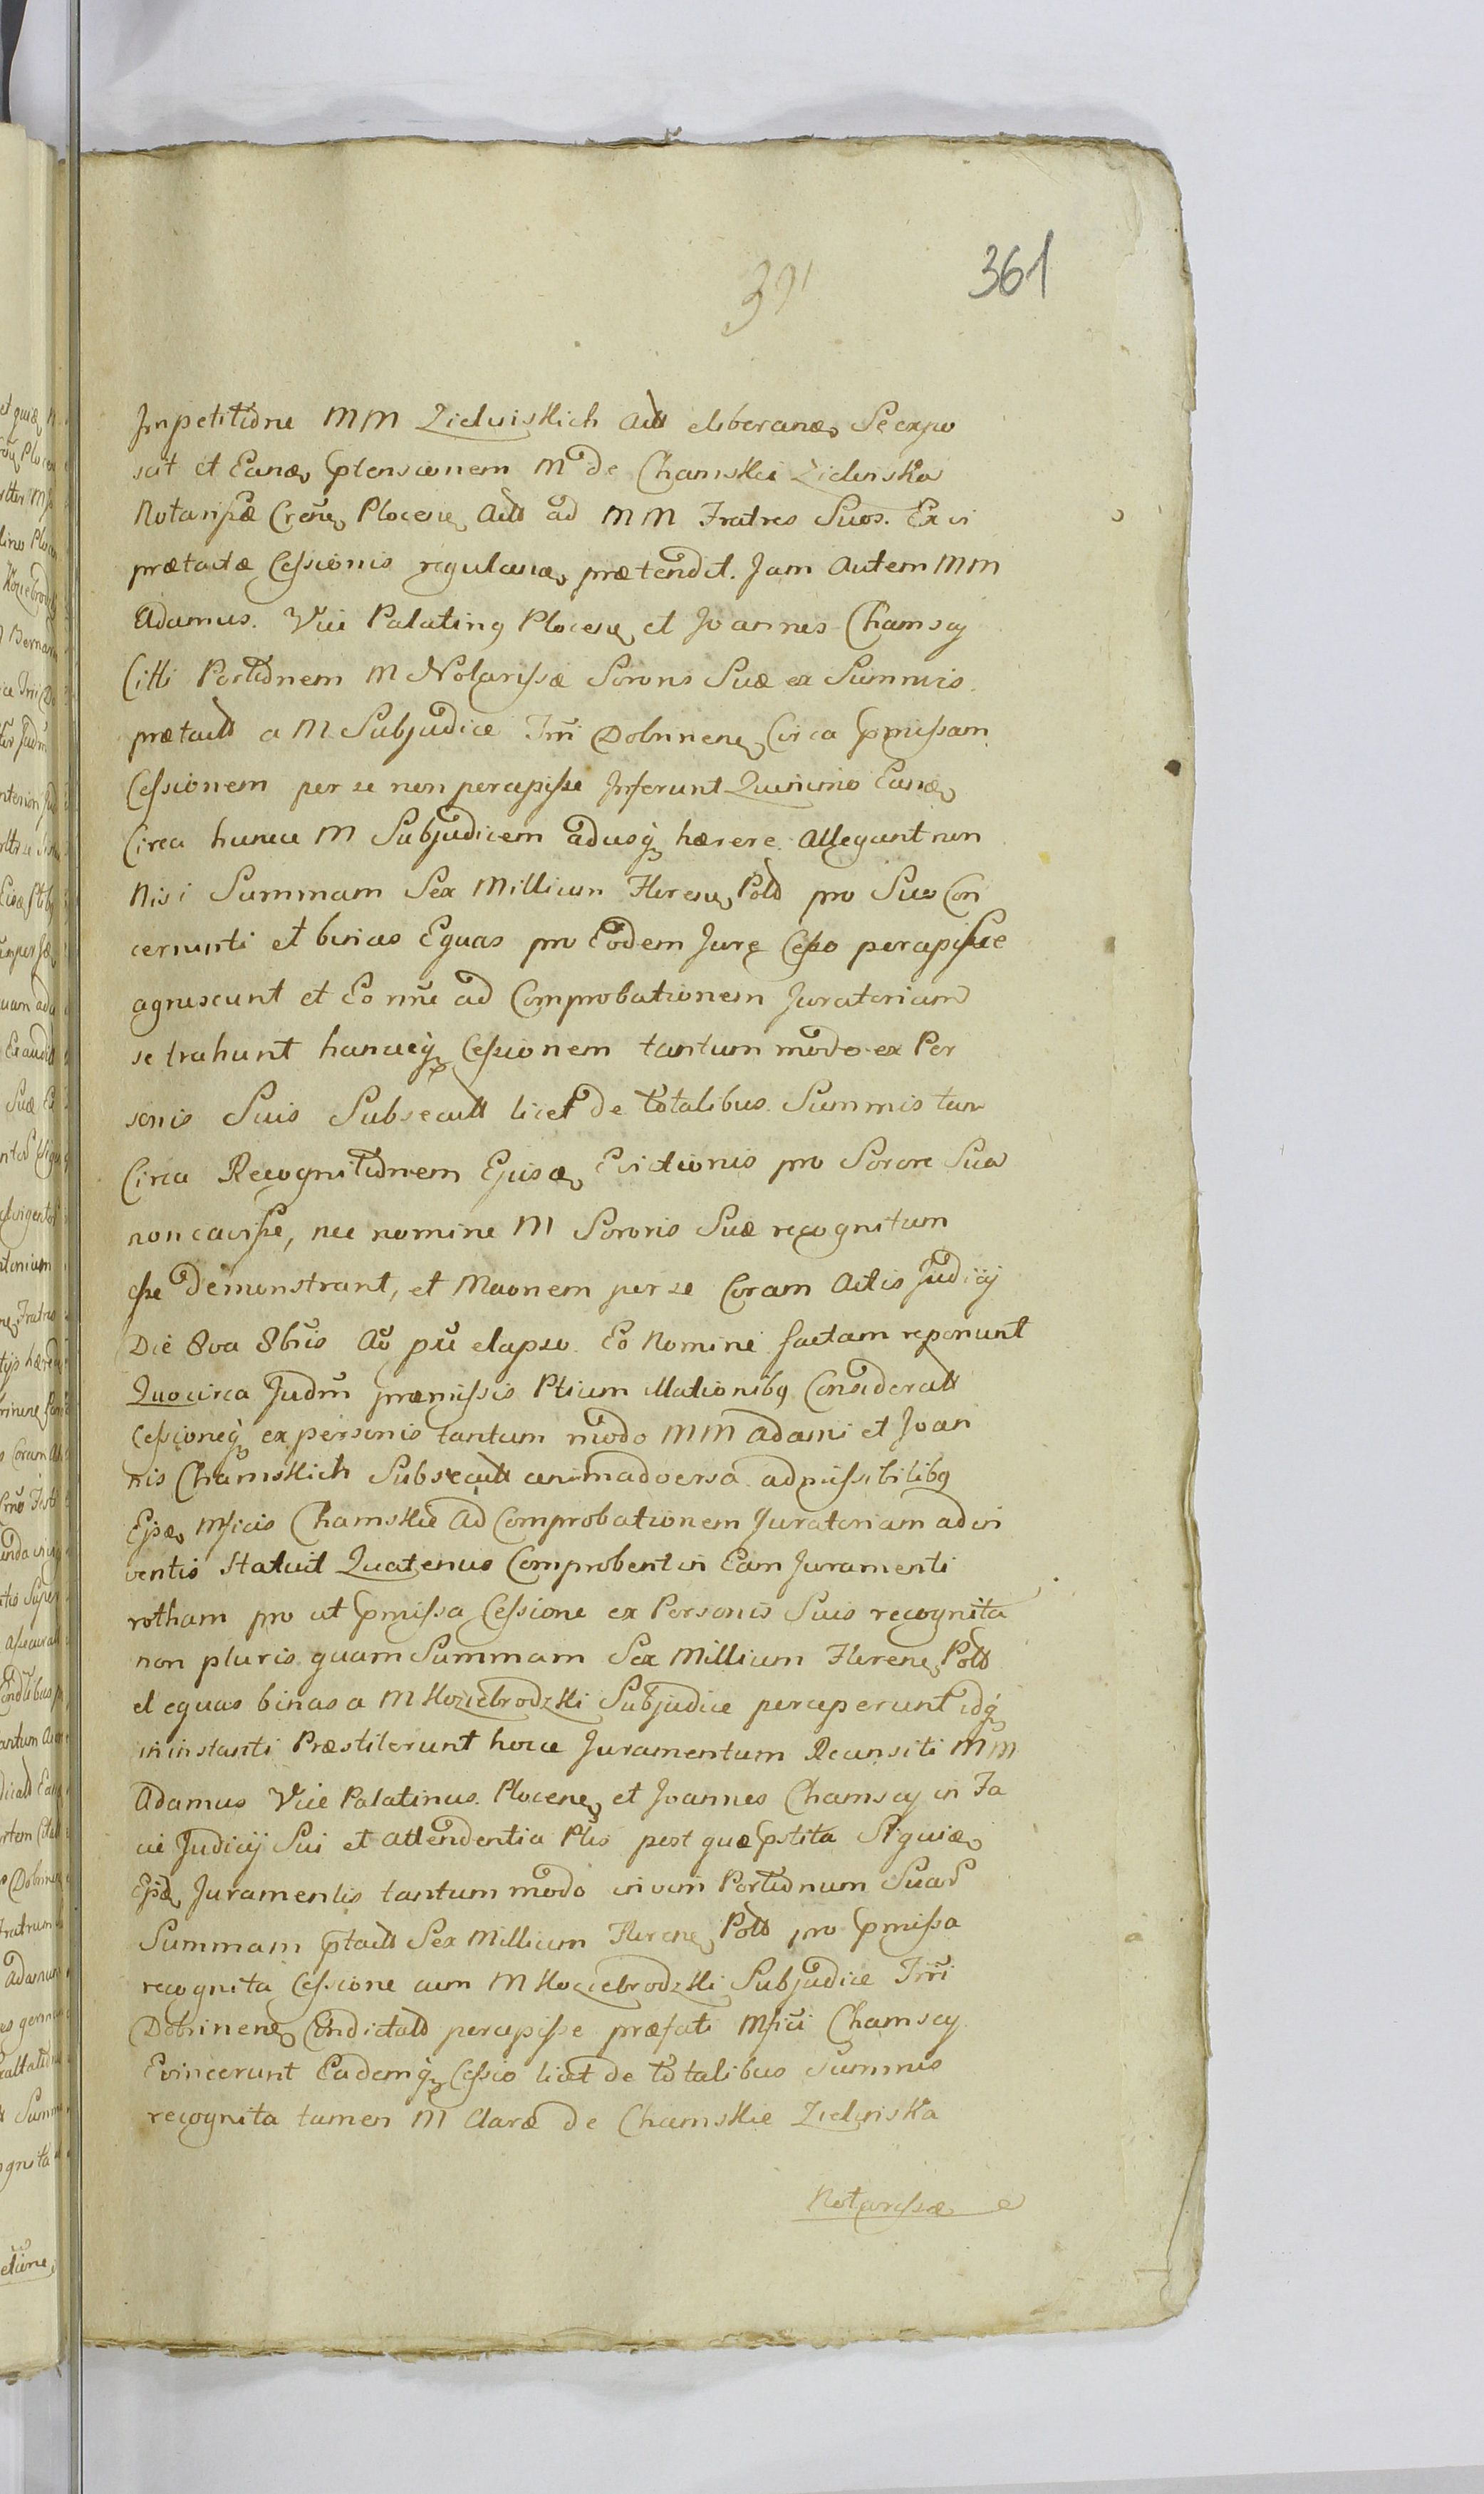 391
361
Impetitōne MM Zieluiskich Actt eliberanđ Se expo
scit et Eanđ ptensionem M de Chamskie Zielinska
Notarissæ Creñe Plocene Actt ad MM Fratres Suos. Ex vi
prætactæ Cessionis regulanđ prætendit. Jam Autem MM
Adamus. Vice Palatinꝰ Plocenẽ et Joannes Chamscy
Citti Portiōnem M Notarissæ Sororis Suæ ex Summis
prætactt a M Subjudice Trrī Dobrinenẽ Circa pmissam
Cessionem per se non percepisse Inferunt Quinimo Eanđ
Circa hunce M Subjudicem adusq hærere Allegunt non
Nisi Summam Sex Millium Florenẽ Poltt pro Suo Con
cernenti et binas Equas pro Eodem Jure Cesso percepisse
agnuscunt et Eo nñe ad Comprobationem Juratoriam
se trahunt hancceq Cessionem tantum modo ex Per
sonis Suis Subsecutt licet de totalibus Summis tum
Circa Recognitiōnem Ejusđ Evictionis pro Sorore Sua
non cavisse, nec nomine M Sororis Suæ recognitam
esse demonstrant, et Maonem per se Coram Actis Judicij
Die 8va 8bris Aō pñ elapso Eo Nomine factam reponunt
Quocirca Judm præmissis Ptium illationibꝰ Consideratt
Cessioneq ex personis tantum modo MM Adami et Joan
nis Chamskich Subsecutt animadversa admissibilibꝰ
Ejsđ Mficis Chamskie Ad Comprobationem Juratoriam ad in
ventis Statuit Quatenus Comprobent in Eam Juramenti
rotham pro ut pmissa Cessione ex Personis Suis recognita
non pluris quam Summam Sex Millium Florene Poltt
et equas binas a M Koziebrodzki Subjudice perceperunt idq
in instanti Præstiterunt hocce Juramentum Recensiti MM
Adamus Vice Palatinus Plocenẽ et Joannes Chamscy in Fa
cie Judicij Sui et attendentia Ptis post quæ pstita Siquiđ
Ejsđ Juramentis tantum modo in vim Portiōnum Suar
Summam ptactt Sex Millium Florenẽ Poltt pro pmissa
recognita Cessione cum M Koziebrodzki Subjudice Trrī
Dobrinenẽ Condictatt percepisse præfati Mfici Chamscy
Evincerunt Eademq Cessio licet de totalibus Summis
recognita tamen M Claræ de Chamskie Zielinska
Notarissæ